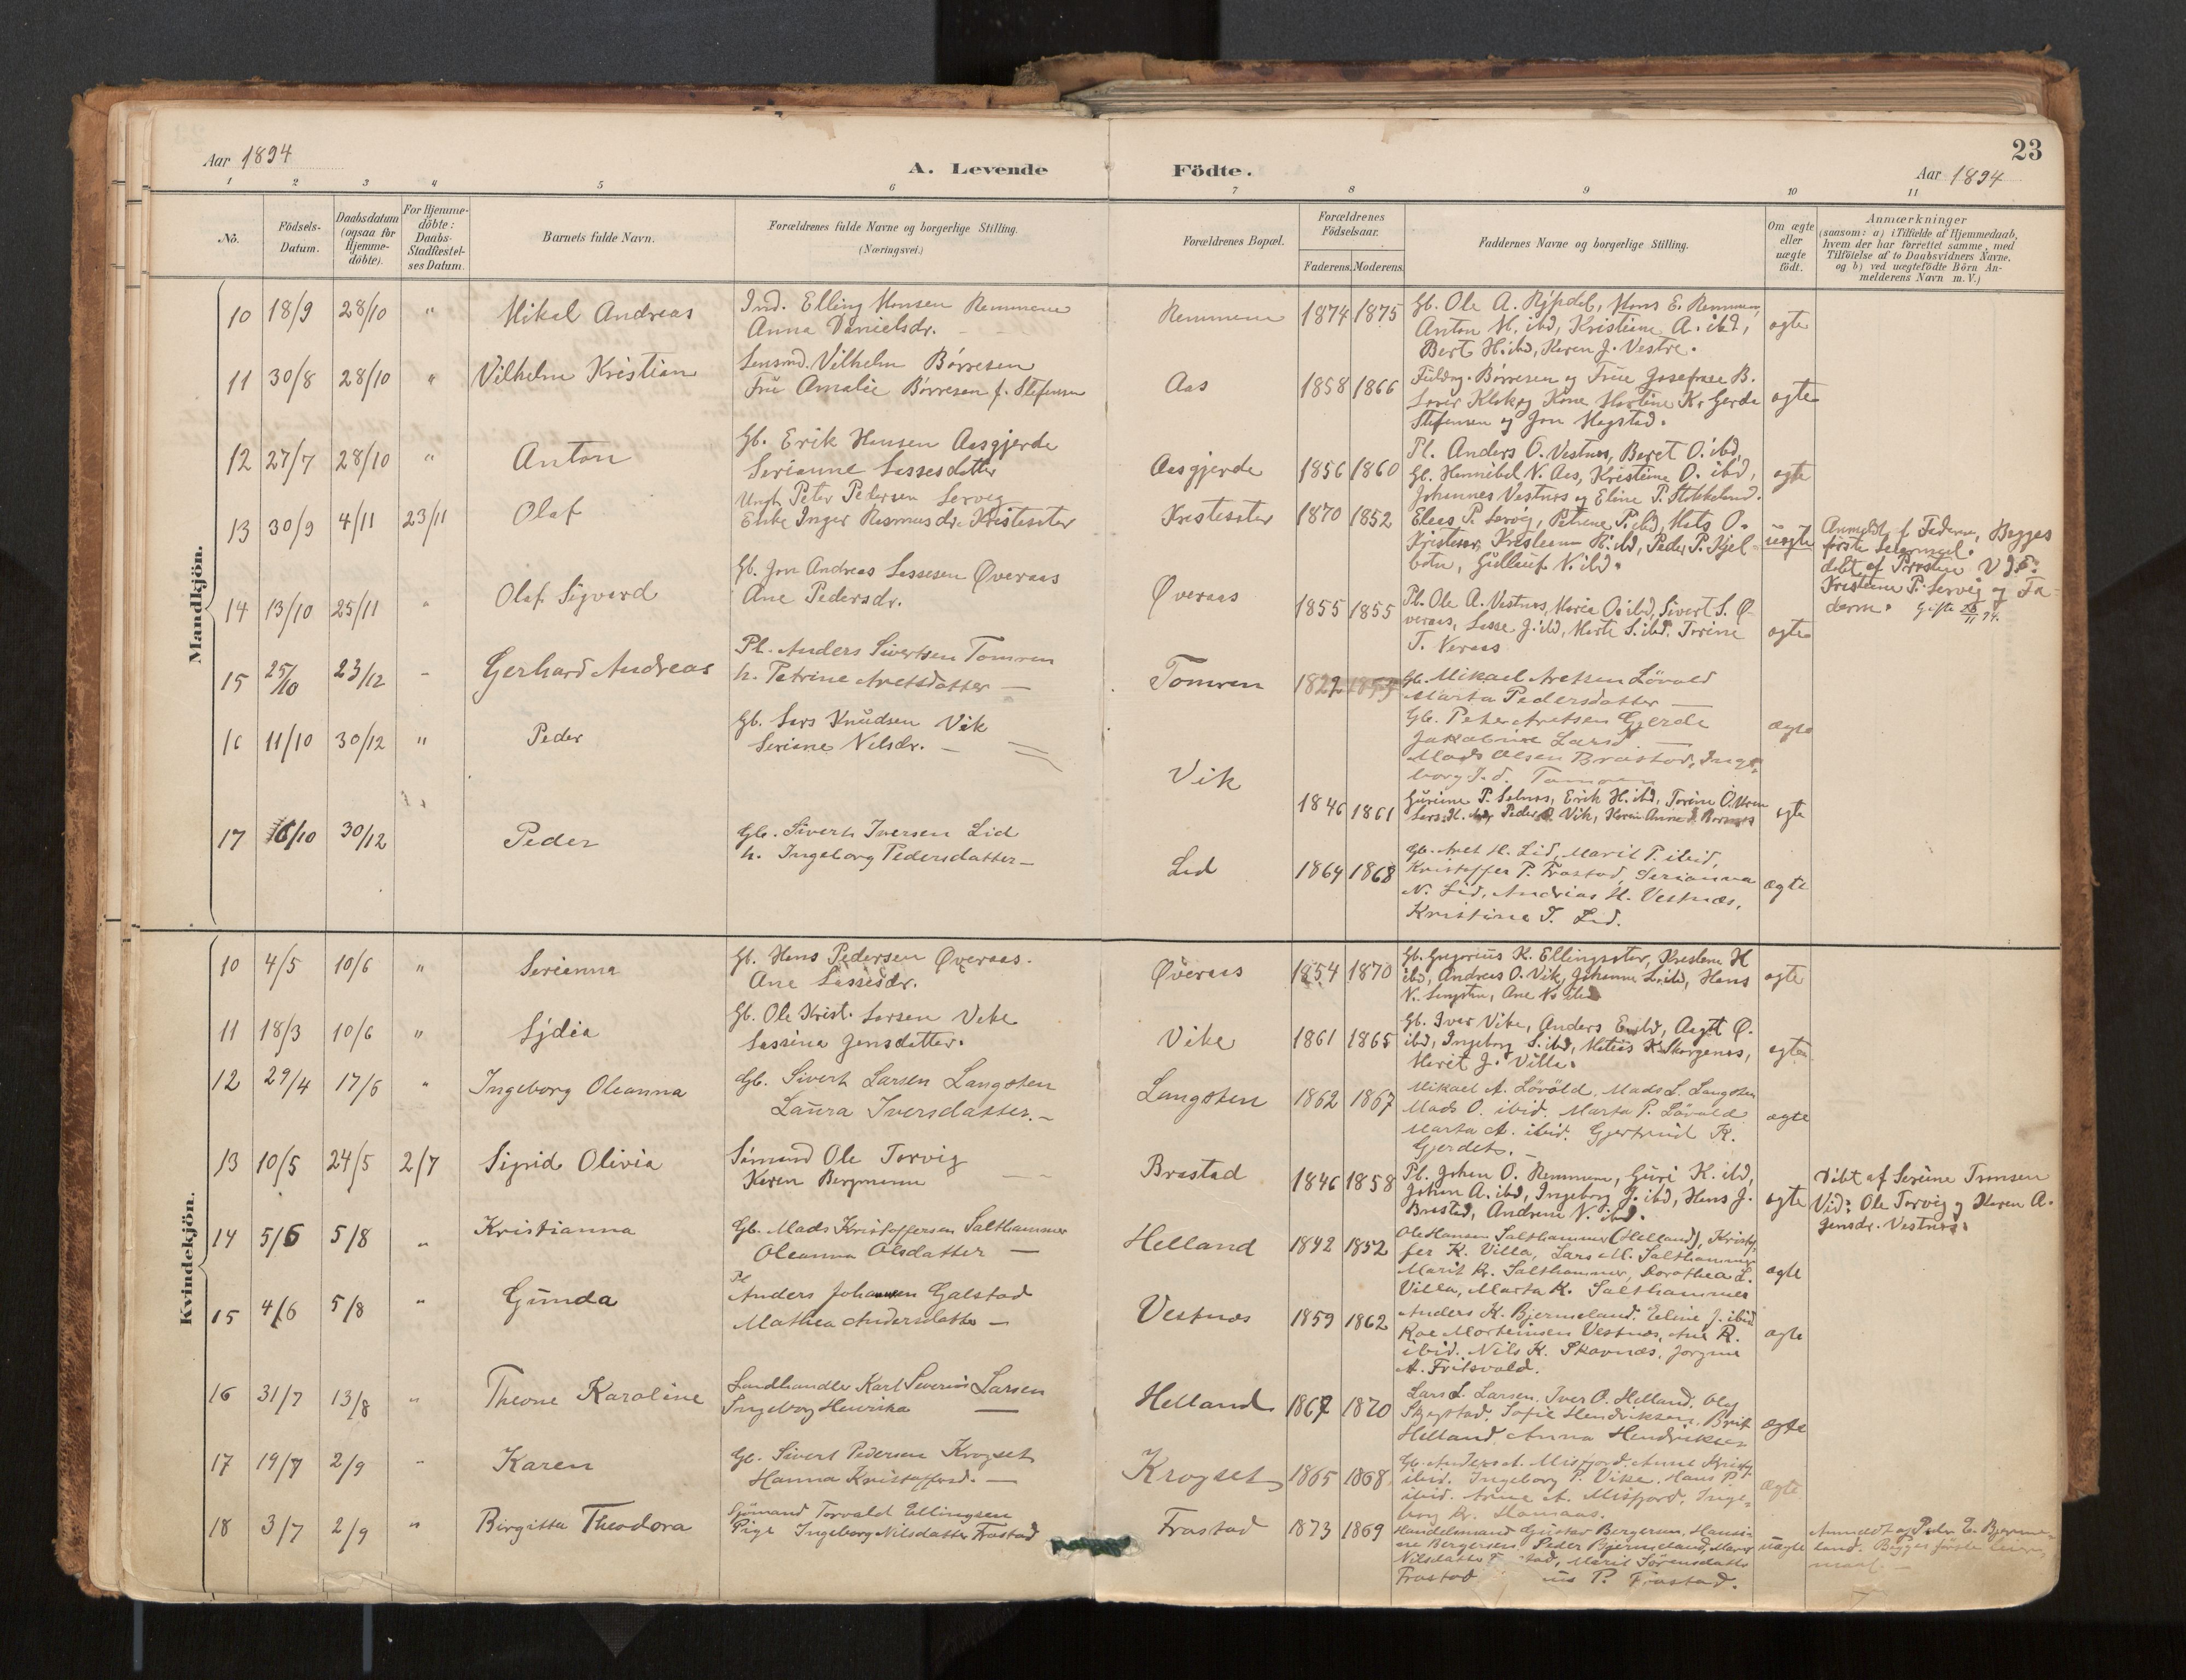 23
Aar 1894
A. Levende Födte.
Aar 1894
1 2 3 4 5 6 7 8 9 10 11
No.
Födsels-Datum.
Daabsdatum (ogsaa for Hjemme-döbte).
For Hjemme-döbte: Daabs-Stadfæstel-ses Datum.
Barnets fulde Navn.
Forældrenes fulde Navne og borgerlige Stilling.
(Næringsvei.)
Forældrenes Bopæl.
Forældrenes Födselsaar.
Faderens. Moderens.
Faddernes Navne og borgerlige Stilling.
Om ægte eller uægte födt.
Anmærkninger
(saasom: a) i Tilfælde af Hjemmedaab,
hvem der har forrettet samme, med
Tilföielse af to Daabsvidners Navne,
og b) ved uægtefödte Börn An-
melderens Navn m. V.)
Mandkjön.
10 18/9 28/10 " Mikal Andreas
Ind. Elling Monsen Remmem
Anna Danielsdr.
Remmem 1874 1875
Gb. Ole A. Rypdal, Mons E. Remmem,
Anton M. ibd, Kristine A. ibd,
Bert H. ibd, Karen J. Vestre.
ægte
11 30/8 28/10 " Vilhelm Kristian
Lensmd. Vilhelm Börresen
Frü Amalie Börresen f. Stefensen
Aas 1858 1866
Fuldm. Börresen og Frue Josefine B.
Kone Martine K. Gerda
Stefensen og Jon Hagstad.
ægte
12 27/7 28/10 " Anton
Gb. Erik Hansen Aasgjerde
Serianne Lassesdatter
Aasgjerde 1856 1860
Pl. Anders O. Vestnæs, Beret O. ibd,
Gb. Hannibal N. Aas, Kristine O. ibd,
Johannes Vestnæs og Eline P. Stokkeland.
ægte
13 30/9 4/11 23/11 Olaf
Ungk. Peter Pedersen Lervig
Enke Inger Rasmusdr. Kristisæter
Kristisæter 1870 1852
Elias P. Lervig, Petrine P. ibd, Mats O.
Peder P. Kjel-
botn, Gülleuf N. ibd.
uægte
Anmeldt f. Faderen, Begges
første Leiermaal.
döbt af
Kristine P. Lervig og Fa-
deren. Gifte 23/11 94.
14 13/10 25/11 " Olaf Sigvard
Gb. Jon Andreas Lassesen Øveraas
Ane Pedersdr.
Øveraas 1855 1855
Pl. Ole A. Vestnæs, Maria O. ibd, Sivert S. Ø-
veraas, Lasse J. ibd, Marte S. ibd, Torine
T. Veraas
ægte
15 25/10 23/12 - Gerhard Andreas
Pl. Anders Sivertsen Tomren
h. Petrine Aretsdatter —
Tomren 1822 1855
Gb. Mikael Aretsen Lövold
Marta Pedersdatter —
Gb. Peter Aretsen Gjerde
Jakobine Larsd —
Mads Olsen Brastad, Inge-
borg J. d. Tomren
ægte
16 11/10 30/12 " Peder
Gb. Lars Knüdsen Vik
Seriane Nilsdr. —
Vik 1846 1861
Guriane P. Selnæs, Erik H. ibd, Torine O.
Lars K. ibd, Peder O. Vik, Karen Anna
ægte
17 16/10 30/12 Peder
Gb. Sivert Iversen Lid
h. Ingeborg Pedersdatter —
Lid 1864 1868
Gb. Aret H. Lid, Marit P. ibid,
Kristoffer P. Frastad, Serianna
N. Lid, Andrias H. Vestnæs,
Kristine T. Lid.
ægte
Kvindekjön.
10 4/5 10/6 " Serianna
Gb. Hans Pedersen Øveraas.
Ane Lassesdr.
Øveraas 1854 1870
Gb. Gregorius K. Ellingsæter, Kristene H
ibd, Andreas O. Vik, Johanna L. ibd, Hans
N. Langsten, Ane K.
ægte
11 18/3 10/6 " Lydia
Gb. Ole Krist. Larsen Vike
Lassina Jensdatter.
Vike 1861 1865
Gb. Iver Vike, Anders E. ibd, Aagot Ø.
ibd, Ingeborg S. ibd, Matias K. Skorgenes,
Marit J. Villa.
ægte
12 29/4 17/6 " Ingeborg Oleanna
Gb. Sivert Larsen Langsten
Laura Iversdatter. —
Langsten 1862 1867
Mikael A. Lövold, Mads L. Langsten
Mads O. ibid. Marta P. Lövold
Marta A. ibid. Gjertrud K.
Gjerdet.
ægte
13 10/5 24/5 2/7 Sigrid Olivia
Sömand Ole Torvig
Karen Bergmann
Brastad 1846 1858
Pl. Johan O. Remmem, Guri K. ibd,
Johan A. ibd, Ingeborg J. ibd, Hans J.
Brastad, Andrine N. ibd.
ægte
Döbt af Serine Tomsen
Vid: Ole Torvig og Karen A.
Jensdr. Vestnæs.
14 5/6 5/8 " Kristianna
Gb. Mads Kristoffersen Salthammer
Oleanna Olsdatter —
Helland 1842 1852
Ole Hansen Salthammer (Helland), Kristof-
fer K. Villa, Lars M. Salthammer
Marit K. Salthammer, Dorothea L.
Villa, Marta K. Salthammer
ægte
15 4/6 5/8 " Gunda
Pl.
Anders Johansen Galstad
Mathea Andersdatter —
Vestnæs 1859 1862
Anders K. Bjermeland. Eline J. ibid
Roe Morteinsen Vestnæs, Ane R.
ibid. Nils K. Skavnæs, Jorgine
A. Fritsvold.
ægte
16 31/7 13/8 " Theone Karoline
Landhandler Karl Severin Larsen
Ingeborg Henrika —
Helland 1867 1870
Lars L. Larsen, Iver O. Helland, Olaf
Skjegstad, Sofie Hendriksen, Brit
Helland, Anna Hendriksen
ægte
17 19/7 2/9 " Karen
Gb. Sivert Pedersen Krogset
Hanna Kristoffersd. —
Krogset 1865 1868
Gb. Anders A. Misfjord. Anne Kristof.
ibid. Ingeborg P. Vike. Hans P.
ibid. Anne A. Misfjord, Inge-
borg
ægte
18 3/7 2/9 " Birgitta Theodora
Sjömand Torvald Ellingsen
Pige Ingeborg Nilsdatter Frastad
Frastad 1873 1869
Handelsmand Gustav Bergersen, Hansi-
ne Bergersen, Peder Bjermeland, Maren
Nilsdatter Marit Sörensdatter
Frastad P. Frastad.
uægte
Anmeldt af Peder E. Bjerme-
land. Begges förste leier-
maal —